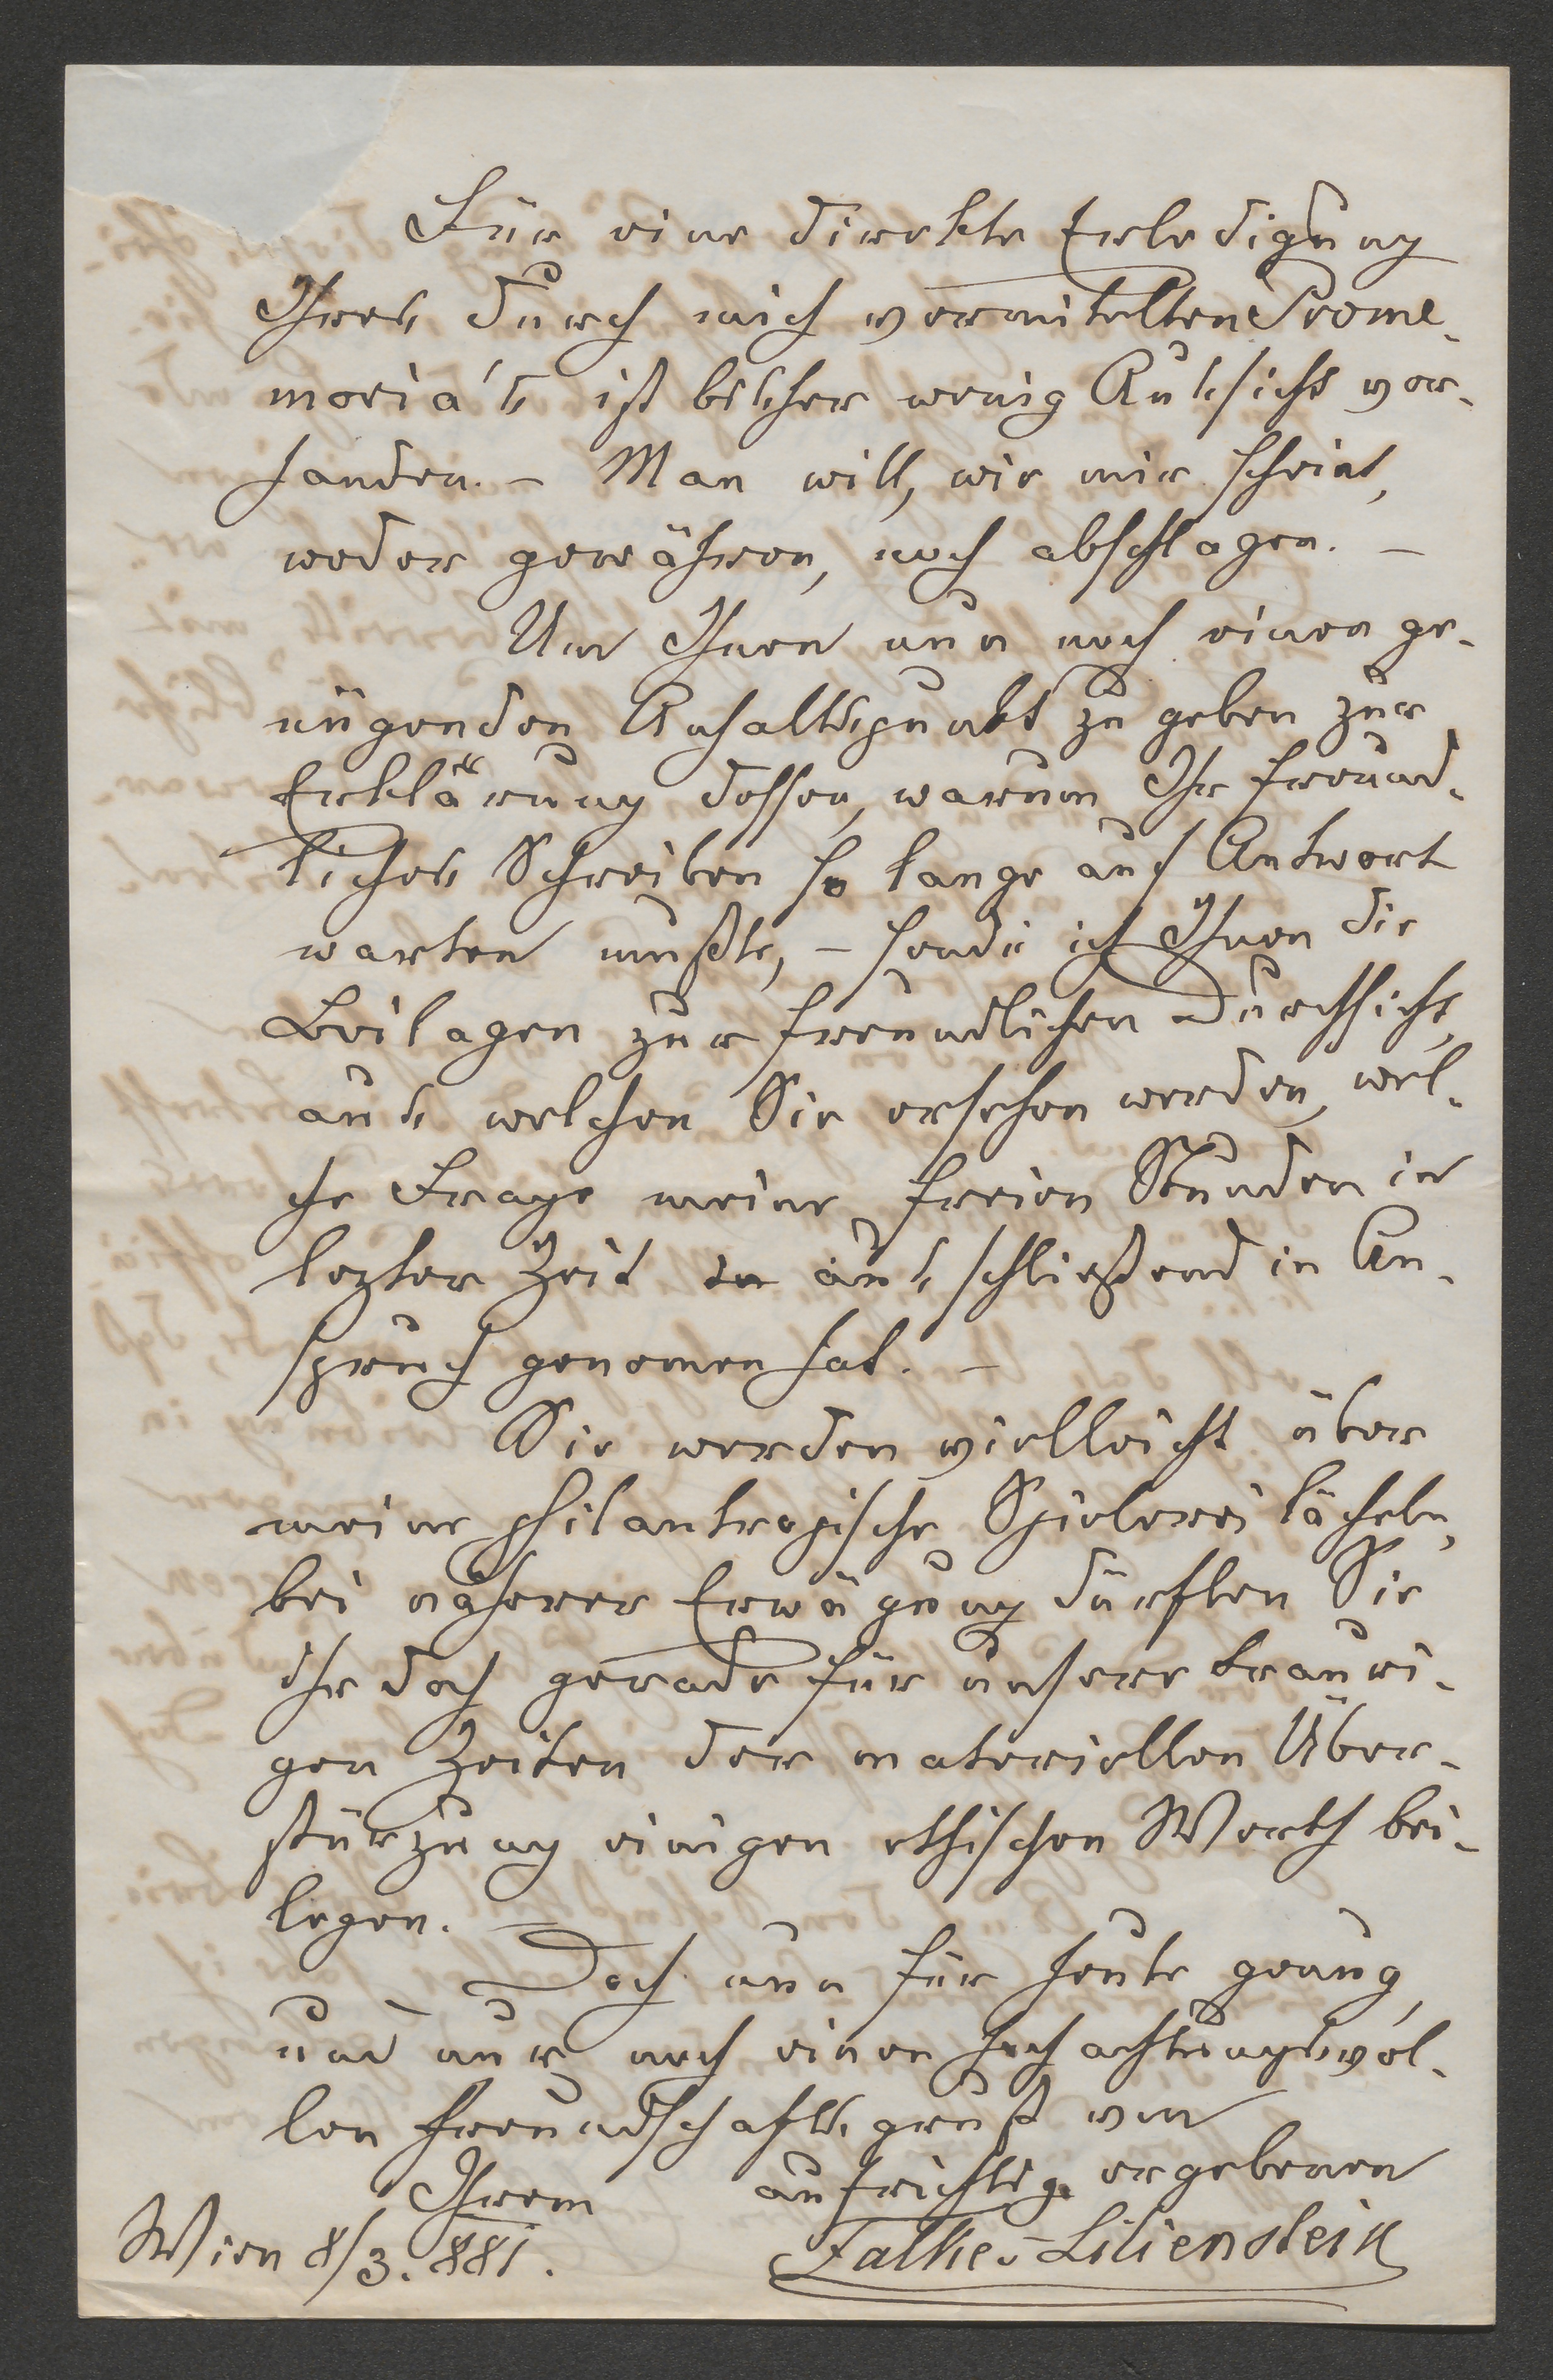 Für eine direkte Erledigung
Ihres durch mich vermittelten Prome-
moria's ist bisher wenig Aussicht vor-
handen. – Man will, wie mir scheint,
weder gewähren, noch abschlagen. –
Um Ihnen nun noch einen ge-
nügenden Anhaltspunkt zu geben zur
Erklärung dessen, warum Ihr freund-
liches Schreiben so lange auf Antwort
warten mußte, – sende ich Ihnen die
Beilagen zur freundlichen Durchsicht,
aus welchen Sie ersehen werden, wel-
che Frage meine freien Stunden in
lezter Zeit ausschließend in An-
spruch genomen hat. –
Sie werden vielleicht über
meine philantropische Spielerei lächeln,
bei näherer Erwägung dürften Sie
ihr doch gerade für unsere trauri-
gen Zeiten der materiellen Über-
stürzung einigen ethischen Werth bei-
legen. –
Doch nun für heute genug,
und nur noch einen hochachtungsvol-
len Freundschaftsgruß von
Ihrem aufrichtig ergebenen
Wien 8/3. 881. Falke-Lilienstein